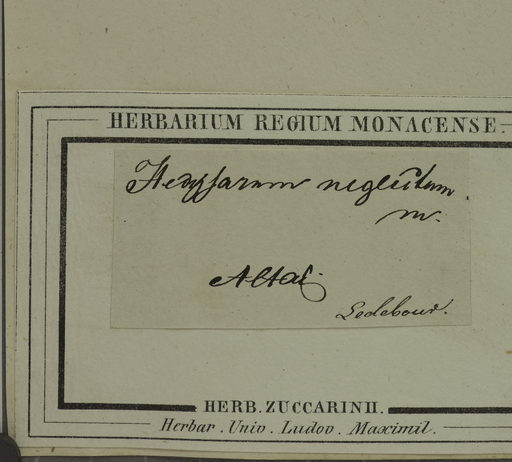 HERBARIUM REGIUM MONACENSE.
Hedysarum neglectum
m.
Altai.
Ledebour.
HERB. ZUCCARINII.
Herbar. Univ. Ludov. Maximil.